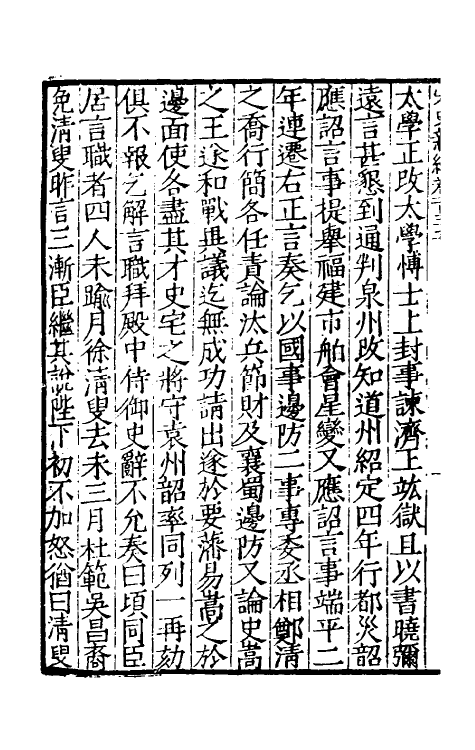 太學正改太學博士上封事諫濟王竑獄且以書曉彌
遠言甚懇到通判泉州改知道州紹定四年行都災韶
應詔言事提舉福建市舶會星變又應詔言事端平二
年連遷右正言奏乞以國事邊防二事專委丞相鄭清
之喬行簡各任責論汰兵節財及襄蜀邊防又論史嵩
之王遂和戰異議迄無成功請出遂於要藩易嵩之於
邊面使各盡其才史宅之將守袁州韶率同列一再劾
俱不報乞解言職拜殿中侍御史辭不允奏曰頃同臣
居言職者四人未踰月徐清叟去未三月杜範吳昌裔
免清叟昨言三漸臣繼其說陛下初不加怒猶曰清叟